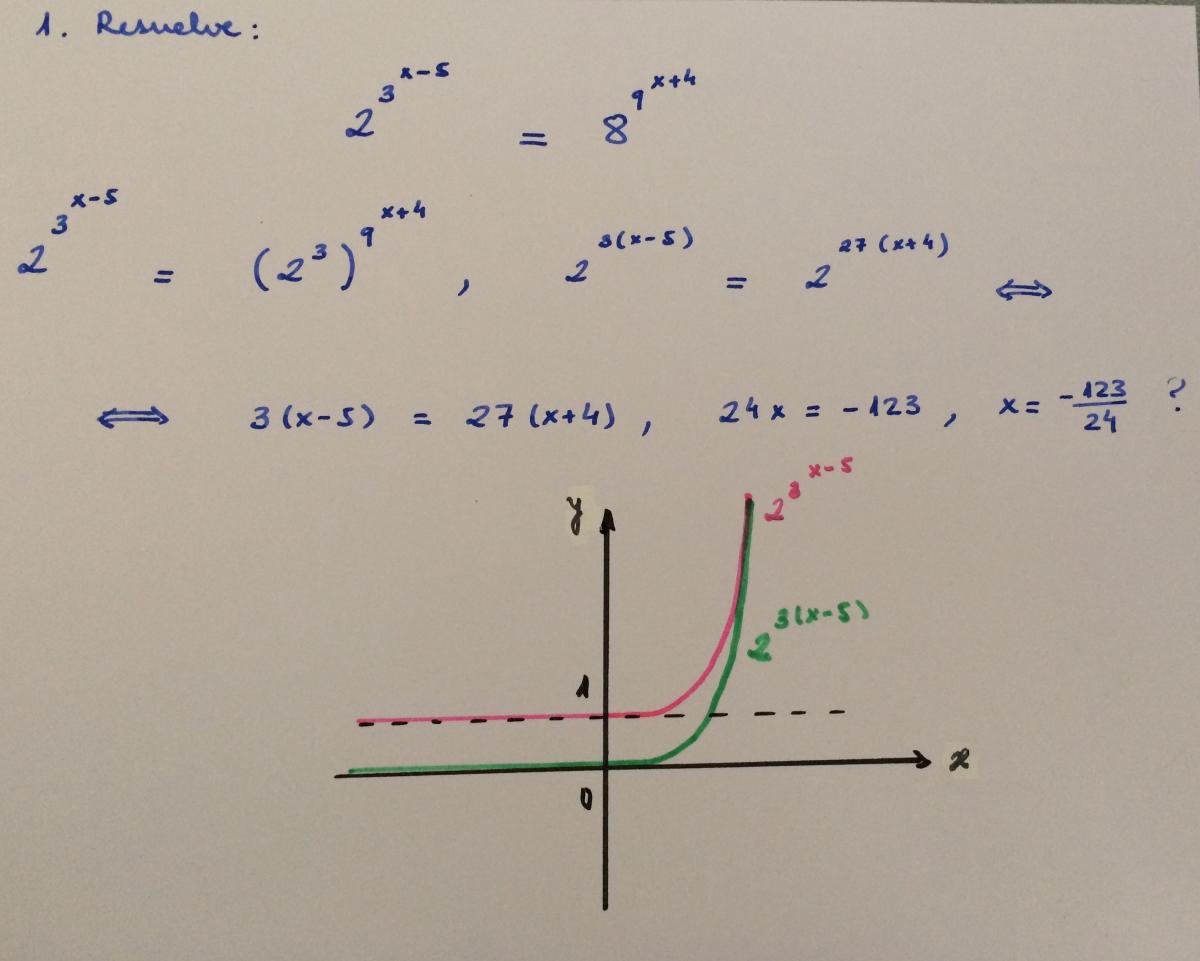 1. Resuelve:
2^{3^{x-5}} = 8^{9^{x+4}}
2^{3^{x-5}} = (2^3)^{9^{x+4}} , 2^{3(x-5)} = 2^{27(x+4)} ⟺
⟺ 3(x-5) = 27(x+4) , 24x = -123 , x = -123/24 ?
2^{3^{x-5}}
y
2^{3(x-5)}
1
x
0